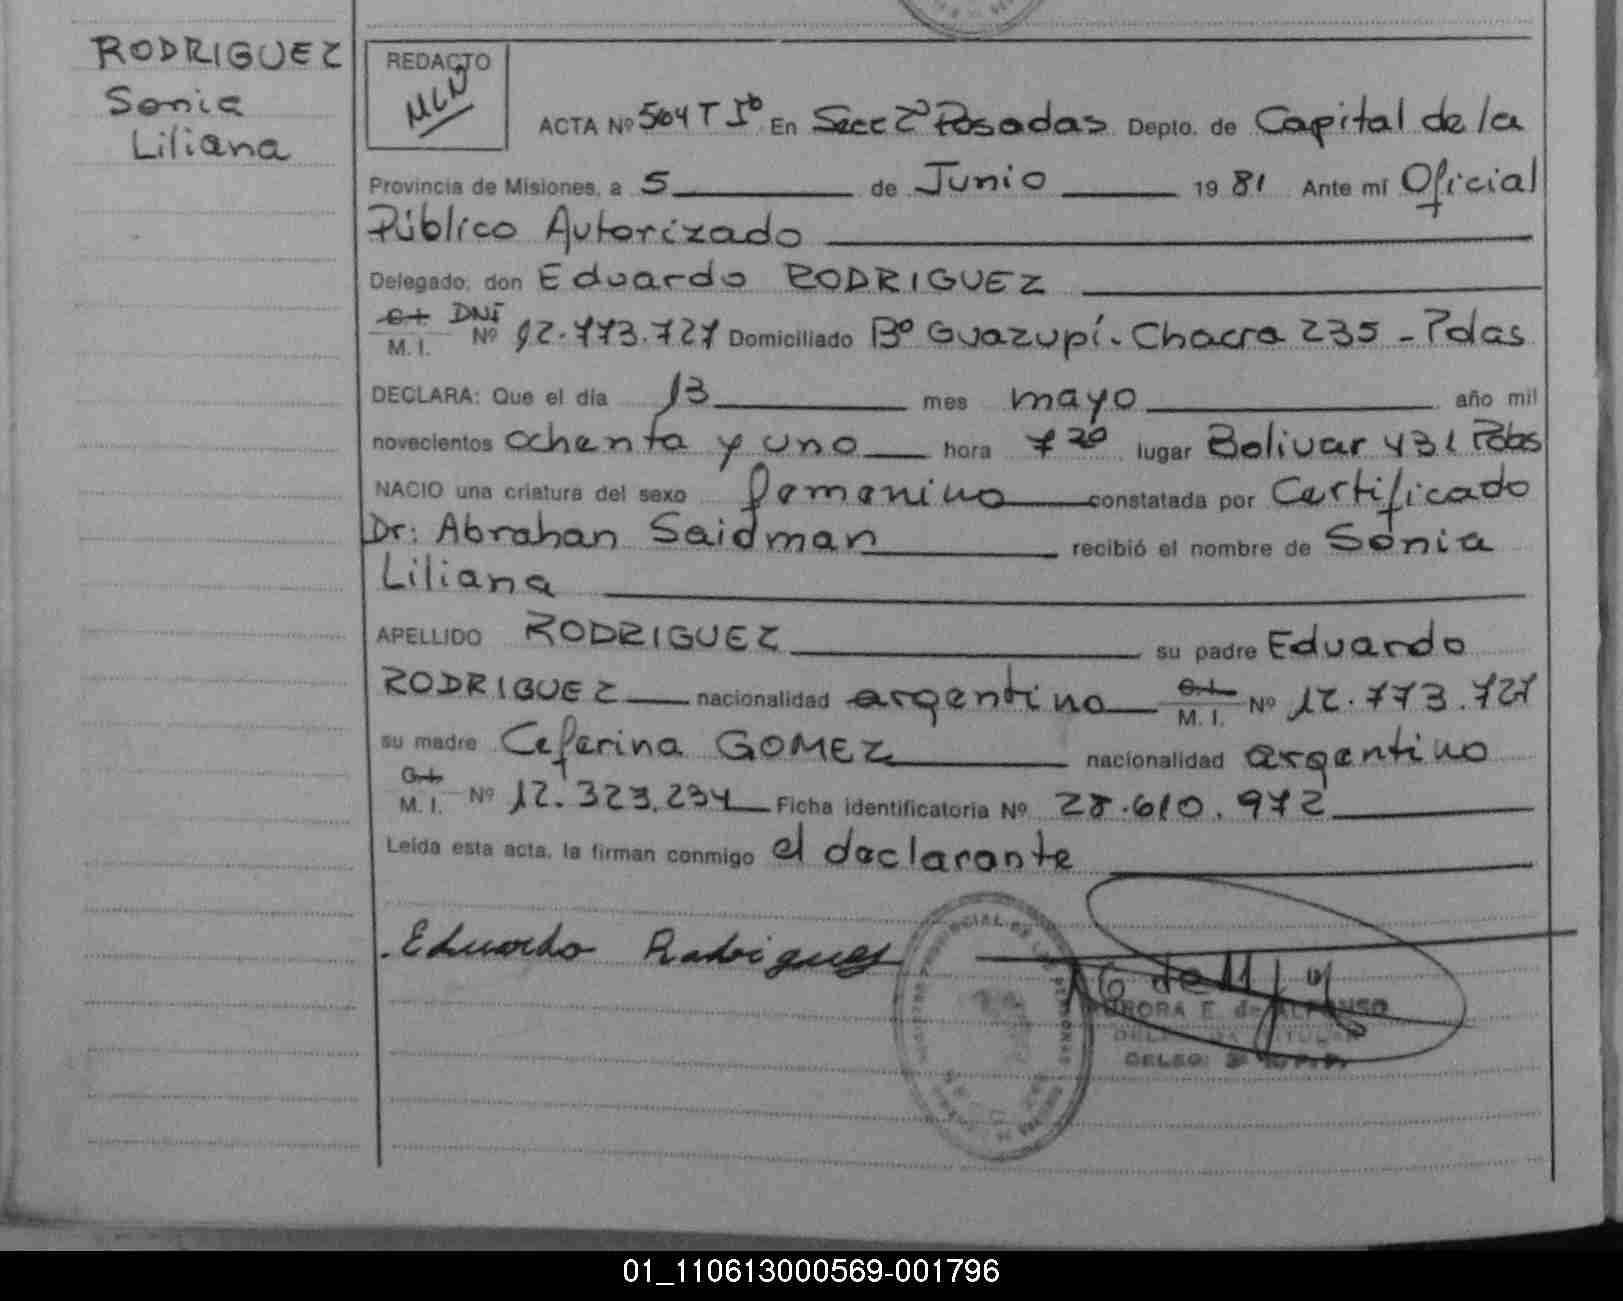 RODRIGUEZ
Sonia
Liliana
REDACTO
MLN
ACTA Nº 504 T Iº En Secc 2ª Posadas Depto. de Capital de la
Provincia de Misiones, a 5 de Junio 1981 Ante mí Oficial
Público Autorizado
Delegado, don Eduardo RODRIGUEZ
C.I. DNI
M. I. Nº 12.773.727 Domiciliado Bº Guazupí. Chacra 235 - Pdas
DECLARA: Que el día 13 mes mayo año mil
novecientos ochenta y uno hora 7 20 lugar Bolivar 431 Pdas
NACIO una criatura del sexo femenino constatada por Certificado
Dr: Abrahan Saidman recibió el nombre de Sonia
Liliana
APELLIDO RODRIGUEZ su padre Eduardo
RODRIGUEZ nacionalidad argentino C.I. M. I. Nº 12.773.727
su madre Ceferina GOMEZ nacionalidad argentino
C.I. M. I. Nº 12.323.234 Ficha identificatoria Nº 28.610.972
Leída esta acta, la firman conmigo el declarante
Eduardo Rodrigues
PROVINCIAL DE LAS PERSONAS
AURORA E. de ALFONSO
DELEGADA TITULAR
01_110613000569-001796